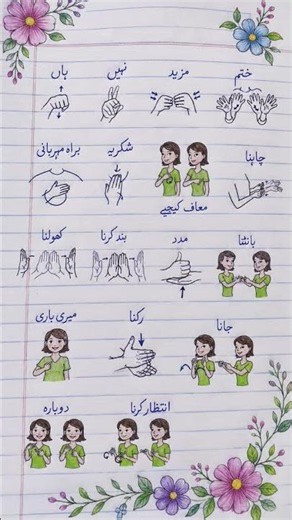 ختم مزید نہیں ہاں
چاہنا معاف کیجیے شکریہ براہ مہربانی
بانٹنا مدد بند کرنا کھولنا
جانا رکنا میری باری
انتظار کرنا دوبارہ